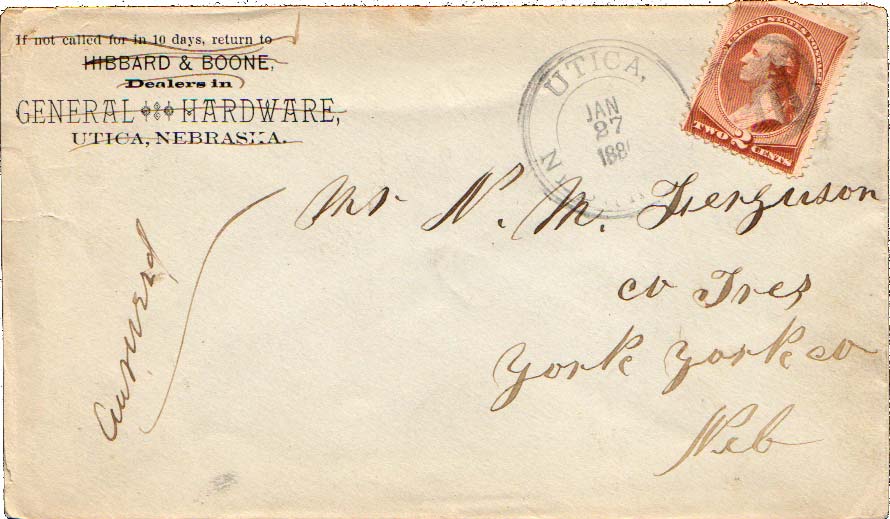 If not called for in 10 days, return to
HIBBARD & BOONE,
Dealers in
GENERAL HARDWARE,
UTICA, NEBRASKA.
UTICA,
JAN
27
188
N
UNITED STATES POSTAGE
TWO 2 CENTS
Mr N. M. Ferguson
co Tres
York York co
Neb
Answerd